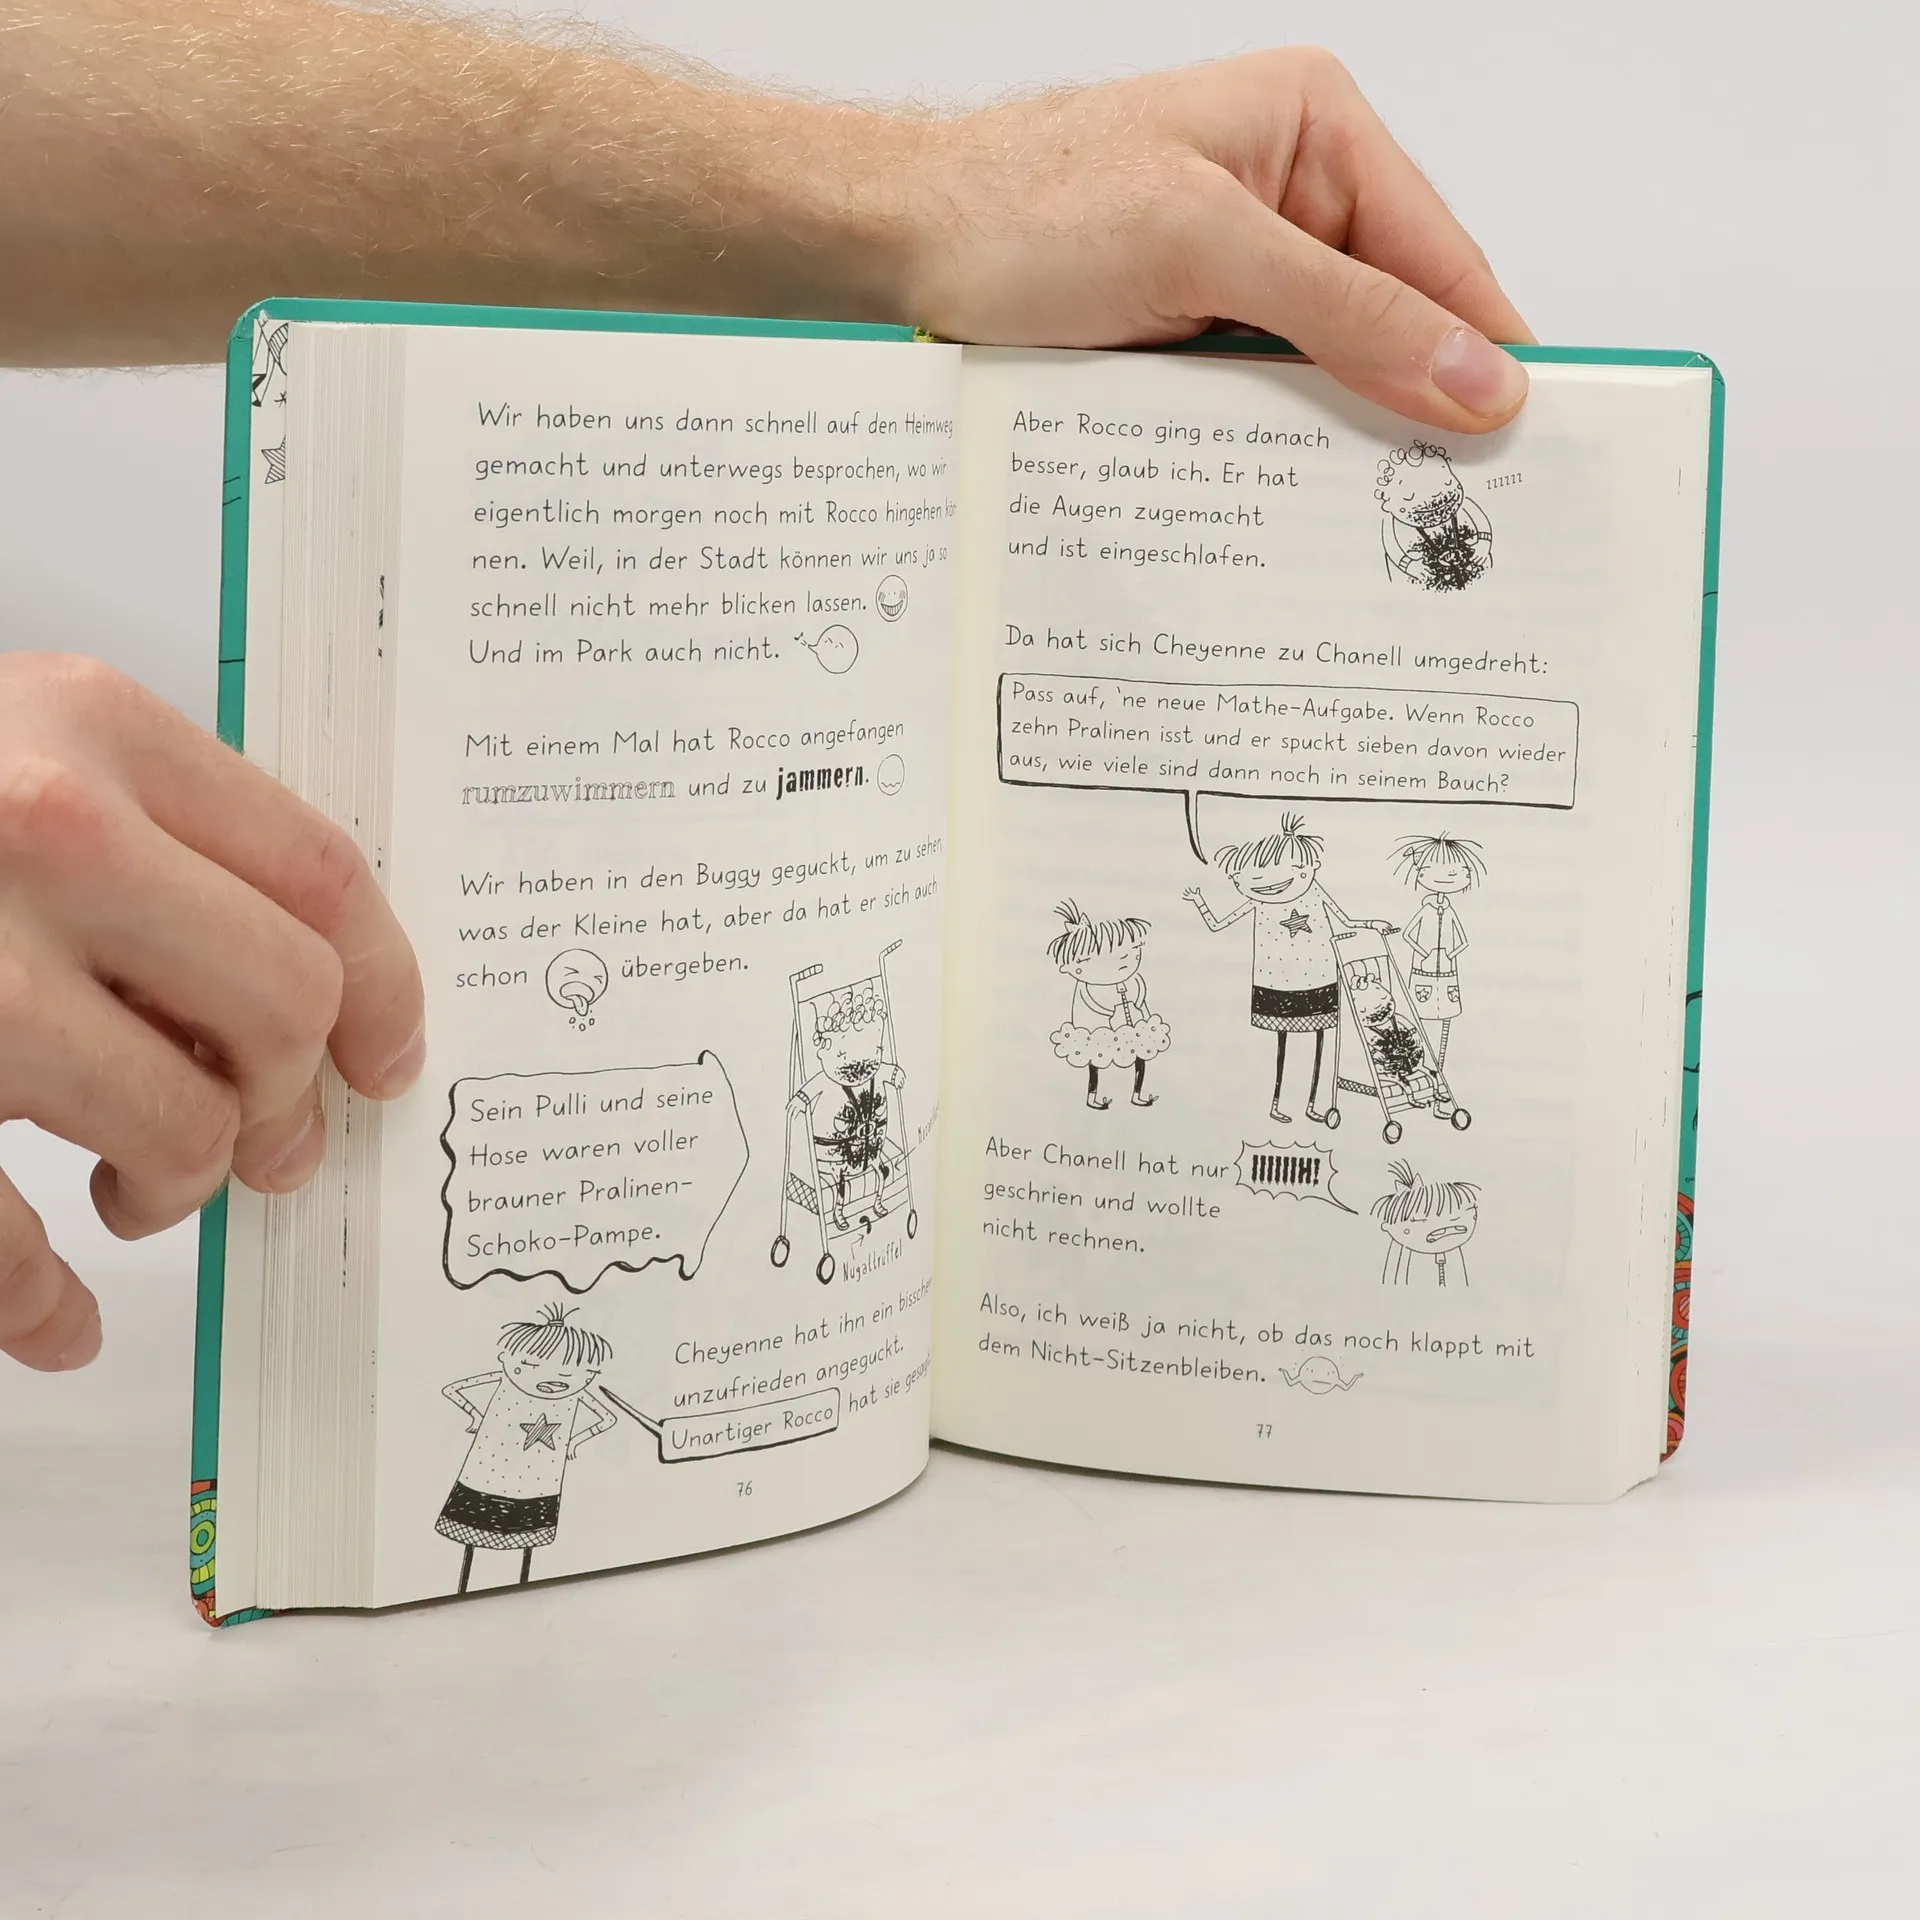 Wir haben uns dann schnell auf den Heimweg
gemacht und unterwegs besprochen, wo wir
eigentlich morgen noch mit Rocco hingehen kön-
nen. Weil, in der Stadt können wir uns ja so
schnell nicht mehr blicken lassen.
Und im Park auch nicht.
Mit einem Mal hat Rocco angefangen
rumzuwimmern und zu jammern.
Wir haben in den Buggy geguckt, um zu sehen,
was der Kleine hat, aber da hat er sich auch
schon übergeben.
Sein Pulli und seine
Hose waren voller
brauner Pralinen-
Schoko-Pampe.
Nugattrüffel
Cheyenne hat ihn ein bisschen
unzufrieden angeguckt.
Unartiger Rocco hat sie gesagt
76
Aber Rocco ging es danach
besser, glaub ich. Er hat
die Augen zugemacht
und ist eingeschlafen.
zzzzzz
Da hat sich Cheyenne zu Chanell umgedreht:
Pass auf, 'ne neue Mathe-Aufgabe. Wenn Rocco
zehn Pralinen isst und er spuckt sieben davon wieder
aus, wie viele sind dann noch in seinem Bauch?
Aber Chanell hat nur IIIIIIH!
geschrien und wollte
nicht rechnen.
Also, ich weiß ja nicht, ob das noch klappt mit
dem Nicht-Sitzenbleiben.
77